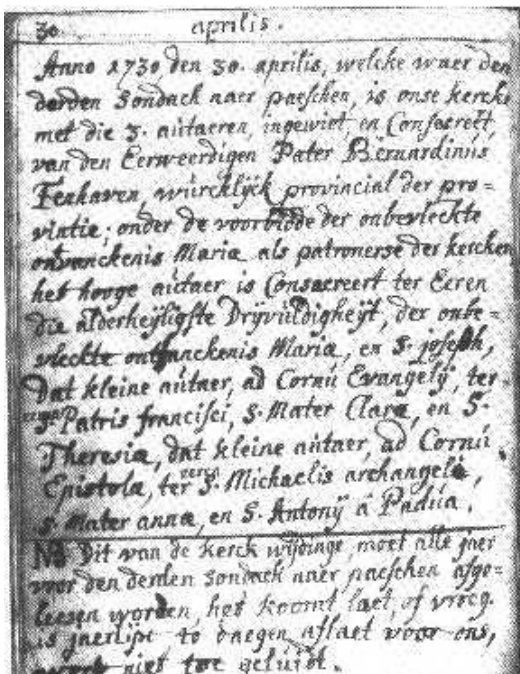 30. aprilis.
Anno 1730 den 30. aprilis, welcke waer den
derden Sondach naer paeschen, is onse kercke
met die 3. autaeren, ingewiet, en Consacreet,
van den Eerweerdigen Pater Bernardinus
Fenhaven, würcklijck provincial der pro=
vintie; onder de voorbidde der onbevleckte
ontvanckenis Mariæ als patronerse der kercken
het hooge autaer is Consacreert ter Eeren
die alderheyligste Drijvuldigheijt, der onbe=
vleckte ontfanckenis Mariæ, en S. joseph,
Dat kleine autaer, ad Cornú Evangelij, ter
eeren S. Patris francisci, S. Mater Claræ, en S.
Theresiæ, dat kleine autaer, ad Cornú
Epistolæ, ter eeren S. Michaelis archangeli,
S. Mater annæ, en S. Antonij â Padúa.
NB Dit van de kerck wijdinge, moet alle jaer
voor den derden sondach naer paeschen afge=
leesen worden, het koomt laet, of vroeg.
is jaerlijx to daegen aflaet voor ons,
niet toe geluidt.